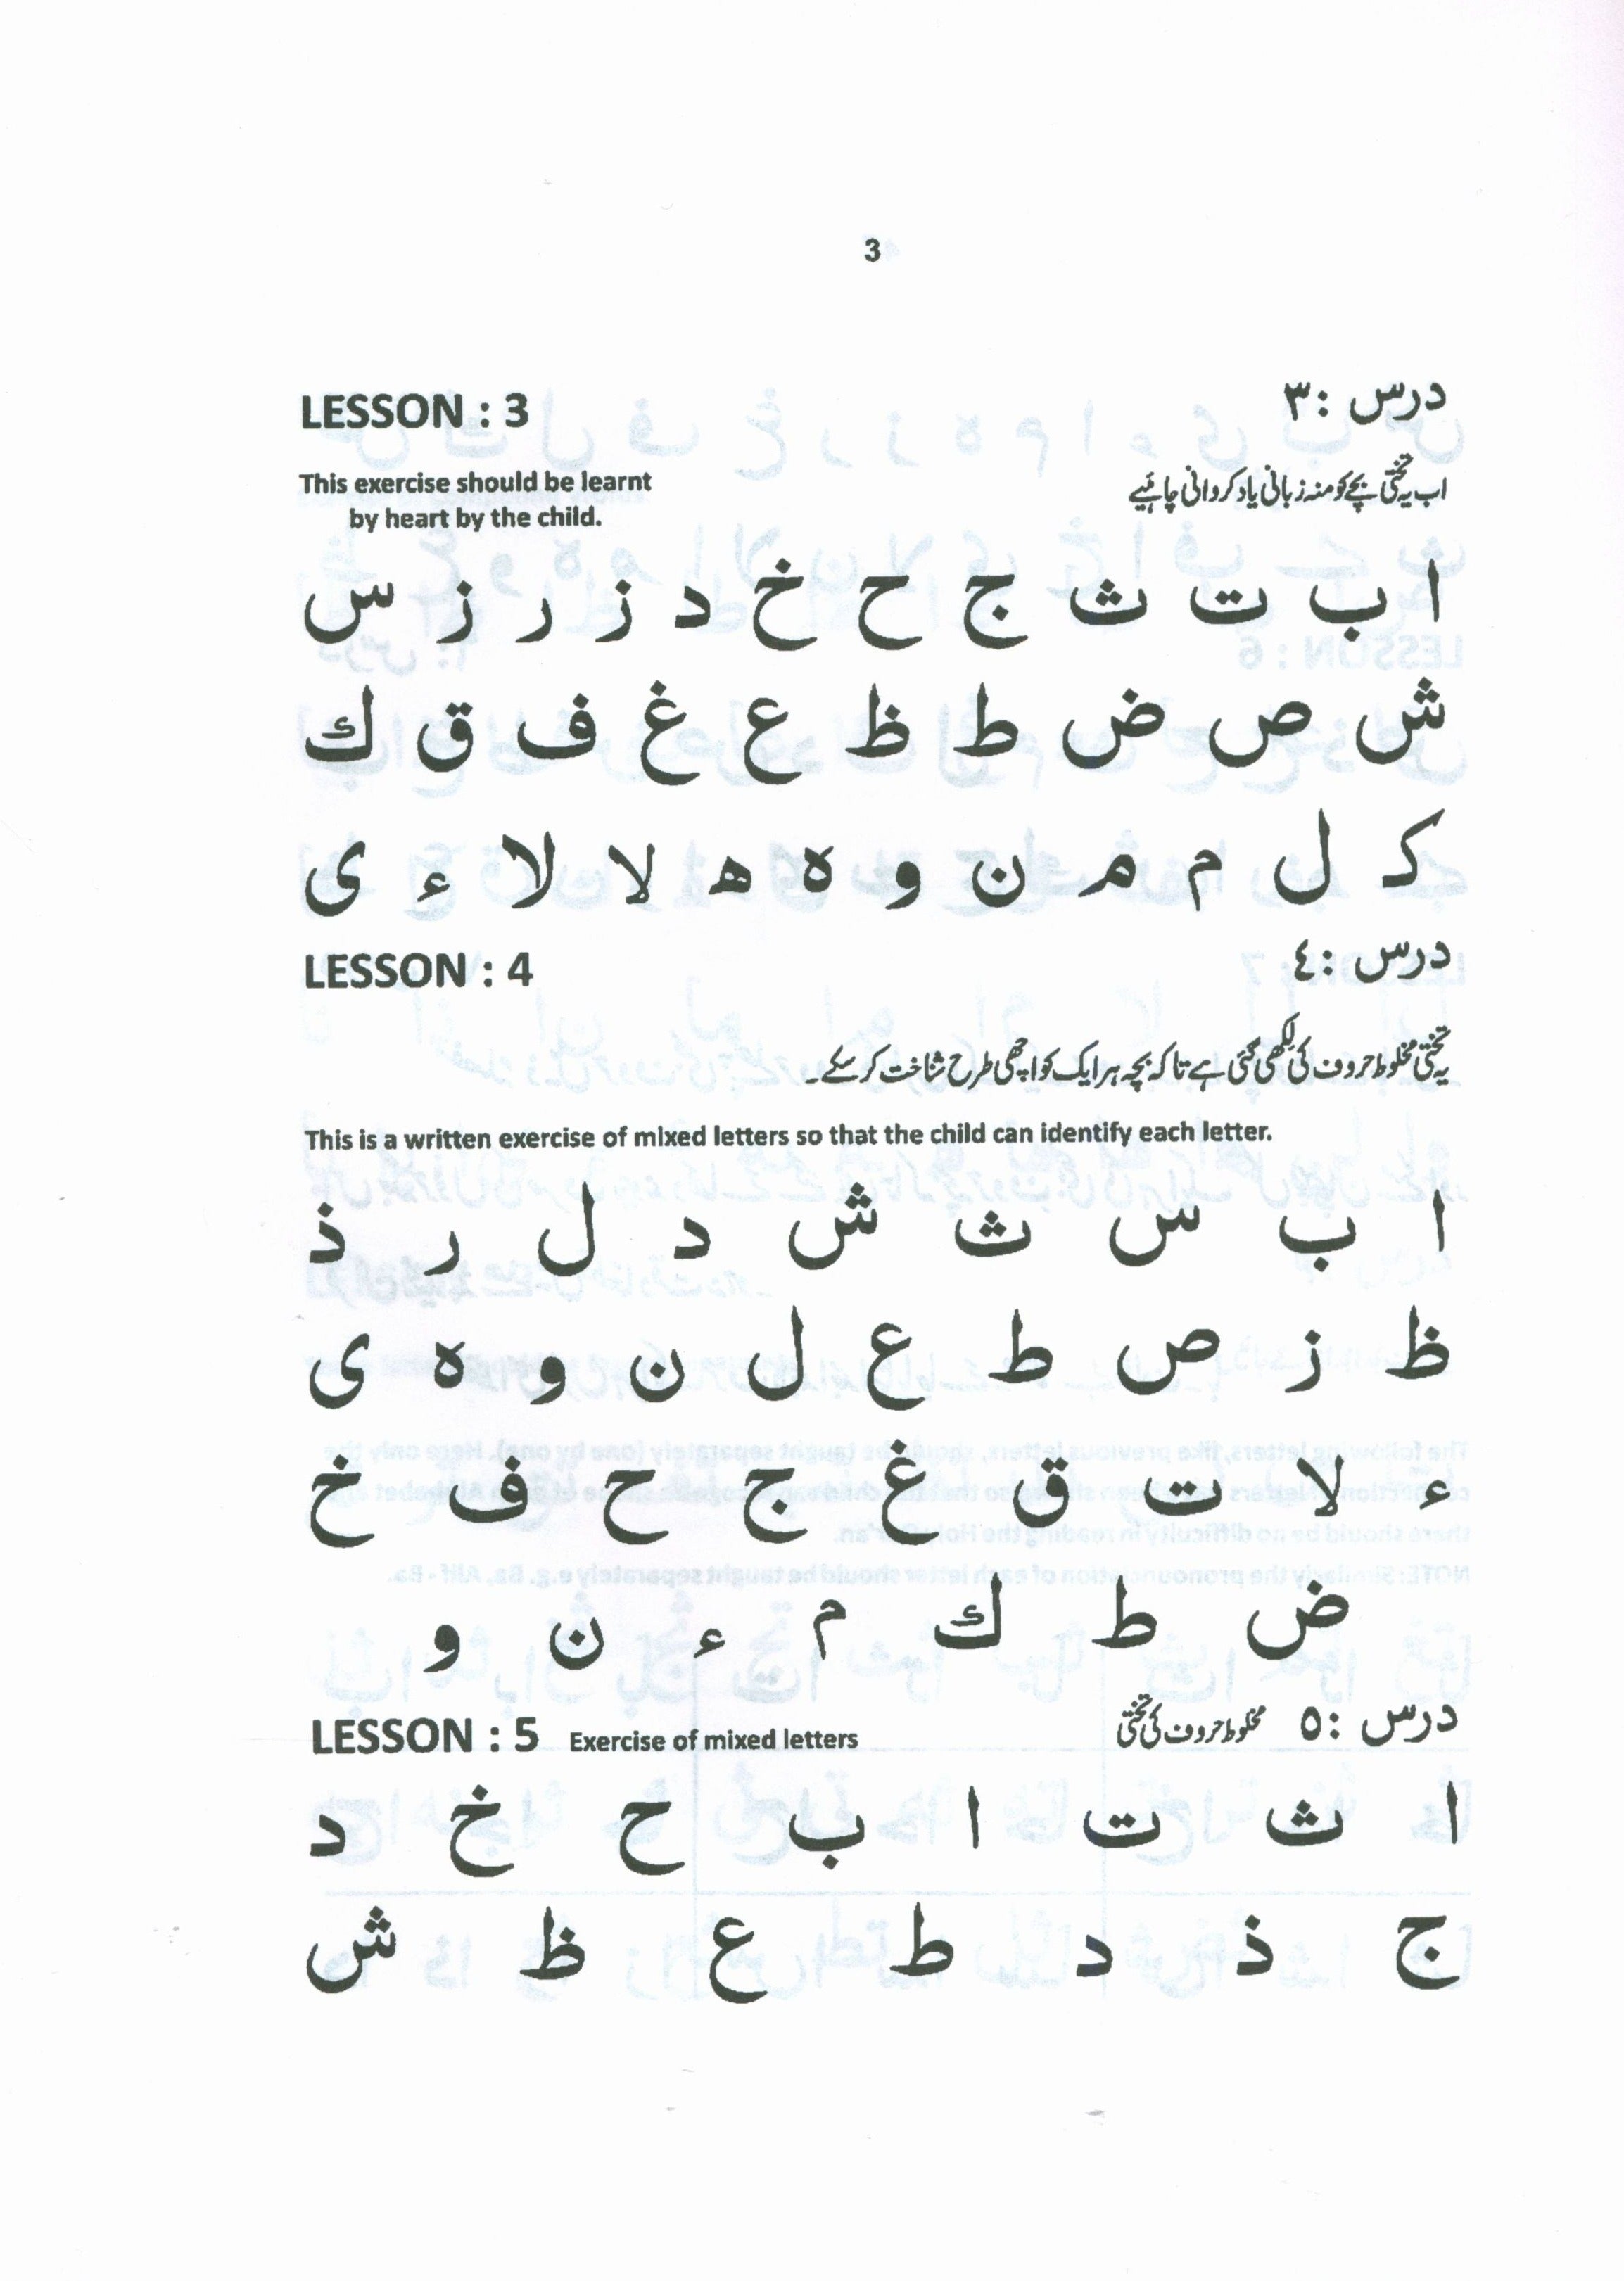 3
LESSON : 3
درس :٣
This exercise should be learnt
by heart by the child.
اب یہ تختی بچے کو منہ زبانی یاد کروانی چاہئیے
ا ب ت ث ج ح خ د ز ر ز س
ش ص ض ط ظ ع غ ف ق ك
ک ل م م ن و ه ھ لا لا ء ى
LESSON : 4
درس :٤
یہ تختی مخلوط حروف کی لکھی گئی ہے تا کہ بچہ ہر ایک کو اچھی طرح شناخت کر سکے۔
This is a written exercise of mixed letters so that the child can identify each letter.
ا ب س ث ش د ل ر ذ
ظ ز ص ط ع ل ن و ه ى
ء لا ت ق غ ج ح ف خ
ض ط ك م ء ن و
LESSON : 5 Exercise of mixed letters
درس :٥ مخلوط حروف کی تختی
ا ث ت ا ب ح خ د
ج ذ د ط ع ظ ش